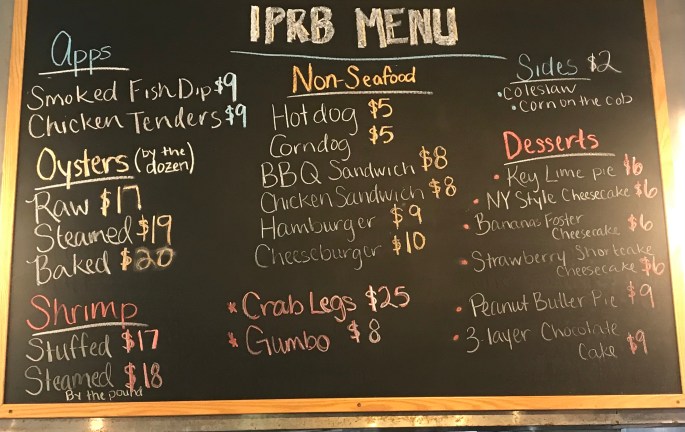 IPRB MENU
Apps
Smoked Fish Dip $9
Chicken Tenders $9
Oysters (by the dozen)
Raw $17
Steamed $19
Baked $20
Shrimp
Stuffed $17
Steamed $18
By the pound
Non-Seafood
Hotdog $5
Corndog $5
BBQ Sandwich $8
Chicken Sandwich $8
Hamburger $9
Cheeseburger $10
* Crab Legs $25
* Gumbo $8
Sides $2
• coleslaw
• corn on the cob
Desserts
• Key Lime pie $6
• NY Style Cheesecake $6
• Bananas Foster
Cheesecake $6
• Strawberry Shortcake
cheesecake $6
• Peanut Butter Pie $9
• 3-layer Chocolate
Cake $9